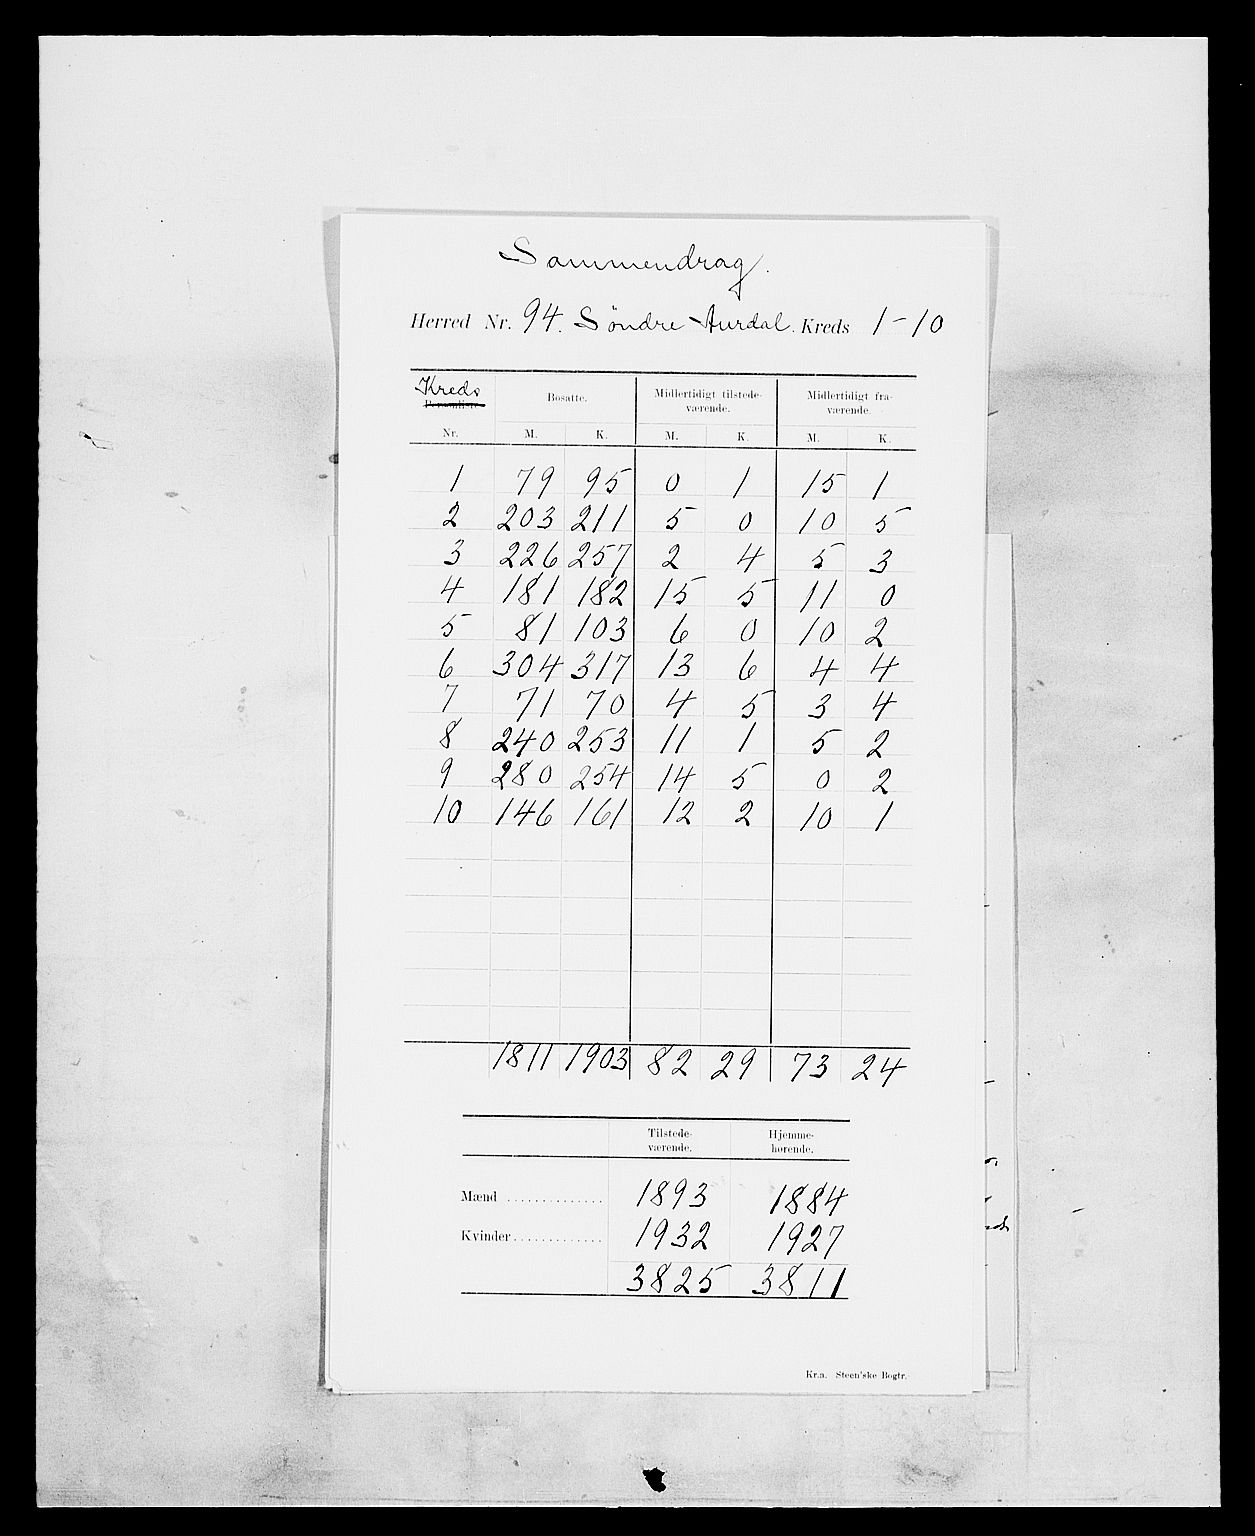 Sammendrag.
Herred Nr. 94. Søndre Aurdal. Kreds 1-10
Kreds
Personliste Bosatte. Midlertidigt tilstede- Midlertidigt fra-
værende. værende.
Nr. M. K. M. K. M. K.
1 79 95 0 1 15 1
2 203 211 5 0 10 5
3 226 257 2 4 5 3
4 181 182 15 5 11 0
5 81 103 6 0 10 2
6 304 317 13 6 4 4
7 71 70 4 5 3 4
8 240 253 11 1 5 2
9 280 254 14 5 0 2
10 146 161 12 2 10 1
1811 1903 82 29 73 24
Tilstede- Hjemme-
værende. hørende.
Mænd .............. 1893 1884
Kvinder ............. 1932 1927
3825 3811
Kr.a. Steen'ske Bogtr.